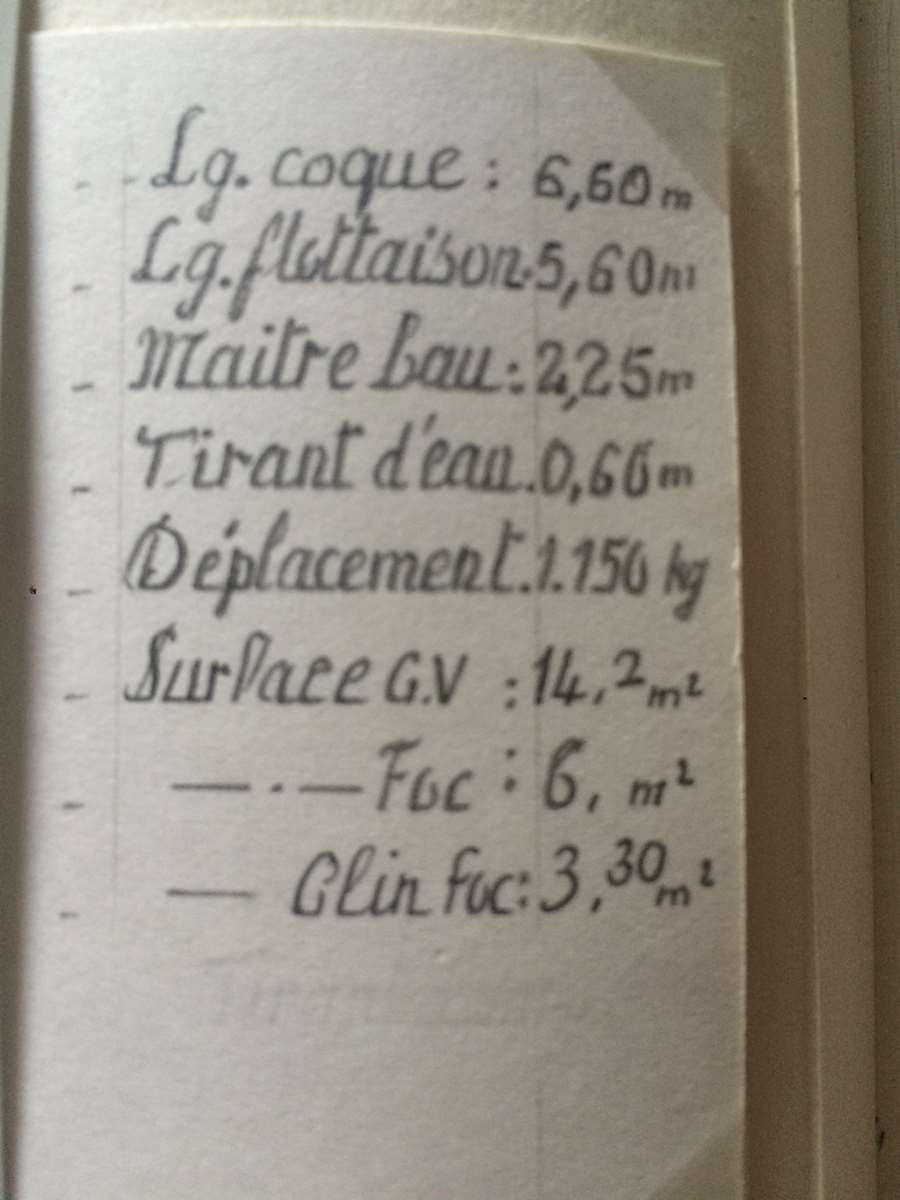 - Lg. coque : 6,60 m
- Lg. flottaison. 5,60 m
- Maitre bau : 2,25 m
- Tirant d'eau. 0,60 m
- Déplacement. 1.150 kg
- Surface G.V : 14,2 m²
- — . — Foc : 6, m²
- — Clin foc : 3,30 m²